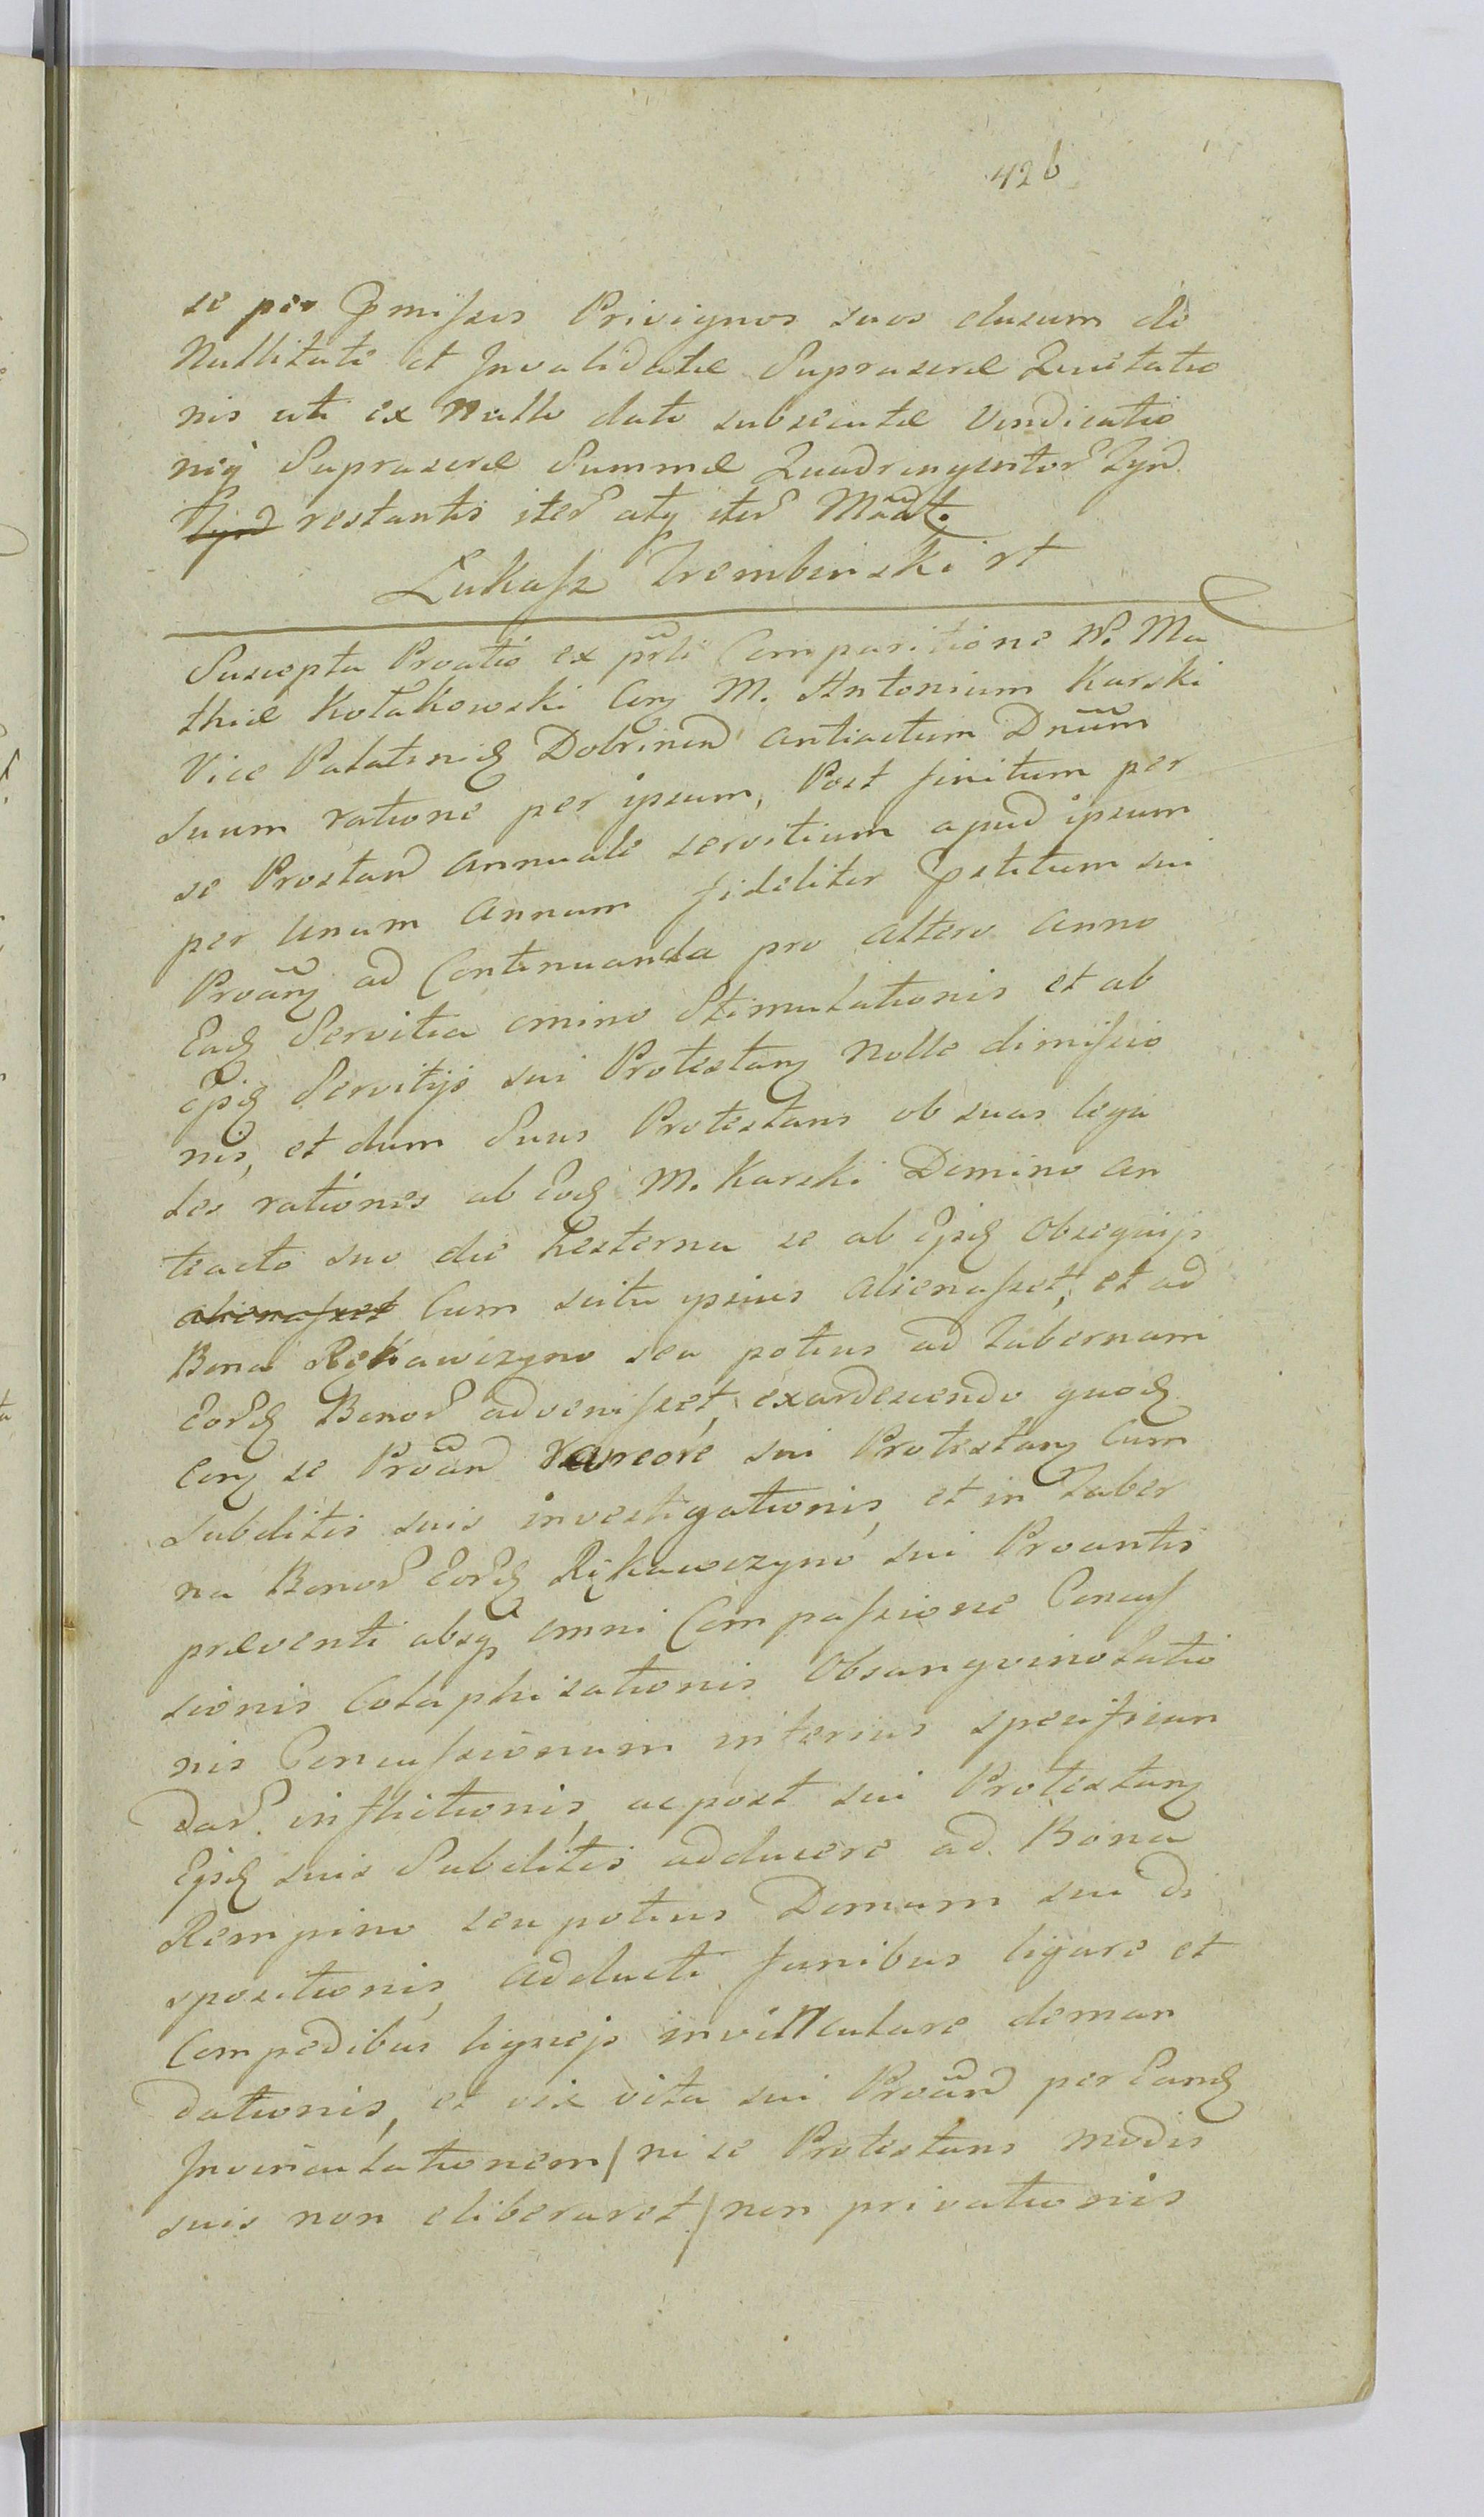 426
se per Pmißis Privignos suos elusum de
Nullitate et Invalidatæ Supraseræ Quietatio
nis uti ex Nullo dato subsecutæ Vendicatio
niq̃ Supraseræ Summæ Quadringentor Tynd
restantis iter atq iter Mãat.
Łukasz Trembinski rt
Suscepta Proatio ex prli Comparitione N. Ma
thiæ Kołakowski Cory M. Antonium Karski
Vice Palatinid Dobrinen antiactum Dnũm
suum ratione per ipsum, Post finitum per
se Prostan annuale servitium apud ipsum
per Unum Annum fideliter Pstitum sui
Proãnt ad Continuanda pro altero anno
Ead Servitia omino Stimulationis et ab
Epid Servitijs sui Protestan Nolle dimißio
nis, et dum Suus Protestans ob suas lega
les rationes ab Eod M. Karski Domino an
teacto suo die hesterna se ab Ejsd Obsequijs
Cum scitu ipsius alienaßet, et ad
Bona Rękawczyno seu potius ad Tabernam
Eord Bonor advenißet, exardescendo quod
Cory se Proãn sui Protestan Cum
Subditis suis investigationis, et in Taber
na Bonor Eord Rękawczyno sui Proantis
præventi absq omni Compaßione Concuß
sionis Colaphisationis Obsangvinolatio
nis Concußionum inferius specifican
dar. inflictionis, ac post sui Protestan
Ejsd suis Subditis adducere ad Bona
Rempino seu potius Domum sui di
spositionis, adducti funibus ligare et
Compedibus ligneis invinculare deman
dationis, et vix vita sui Proãn per Eand
Invinculationem / ni se Protestans modis
suis non eliberaret / non privationis